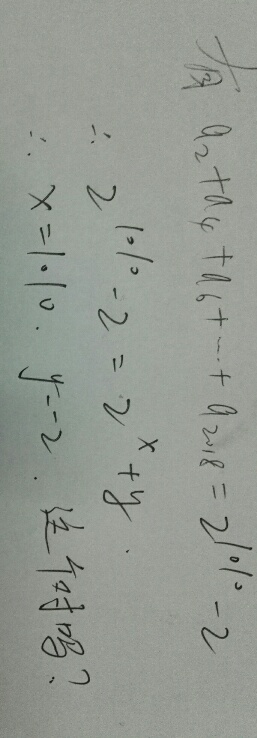 a₂+a₄+a₆+…+a₂₀₁₈=2¹⁰¹⁰-2
∴ 2¹⁰¹⁰-2=2ˣ+y.
∴ x=1010. y=-2.